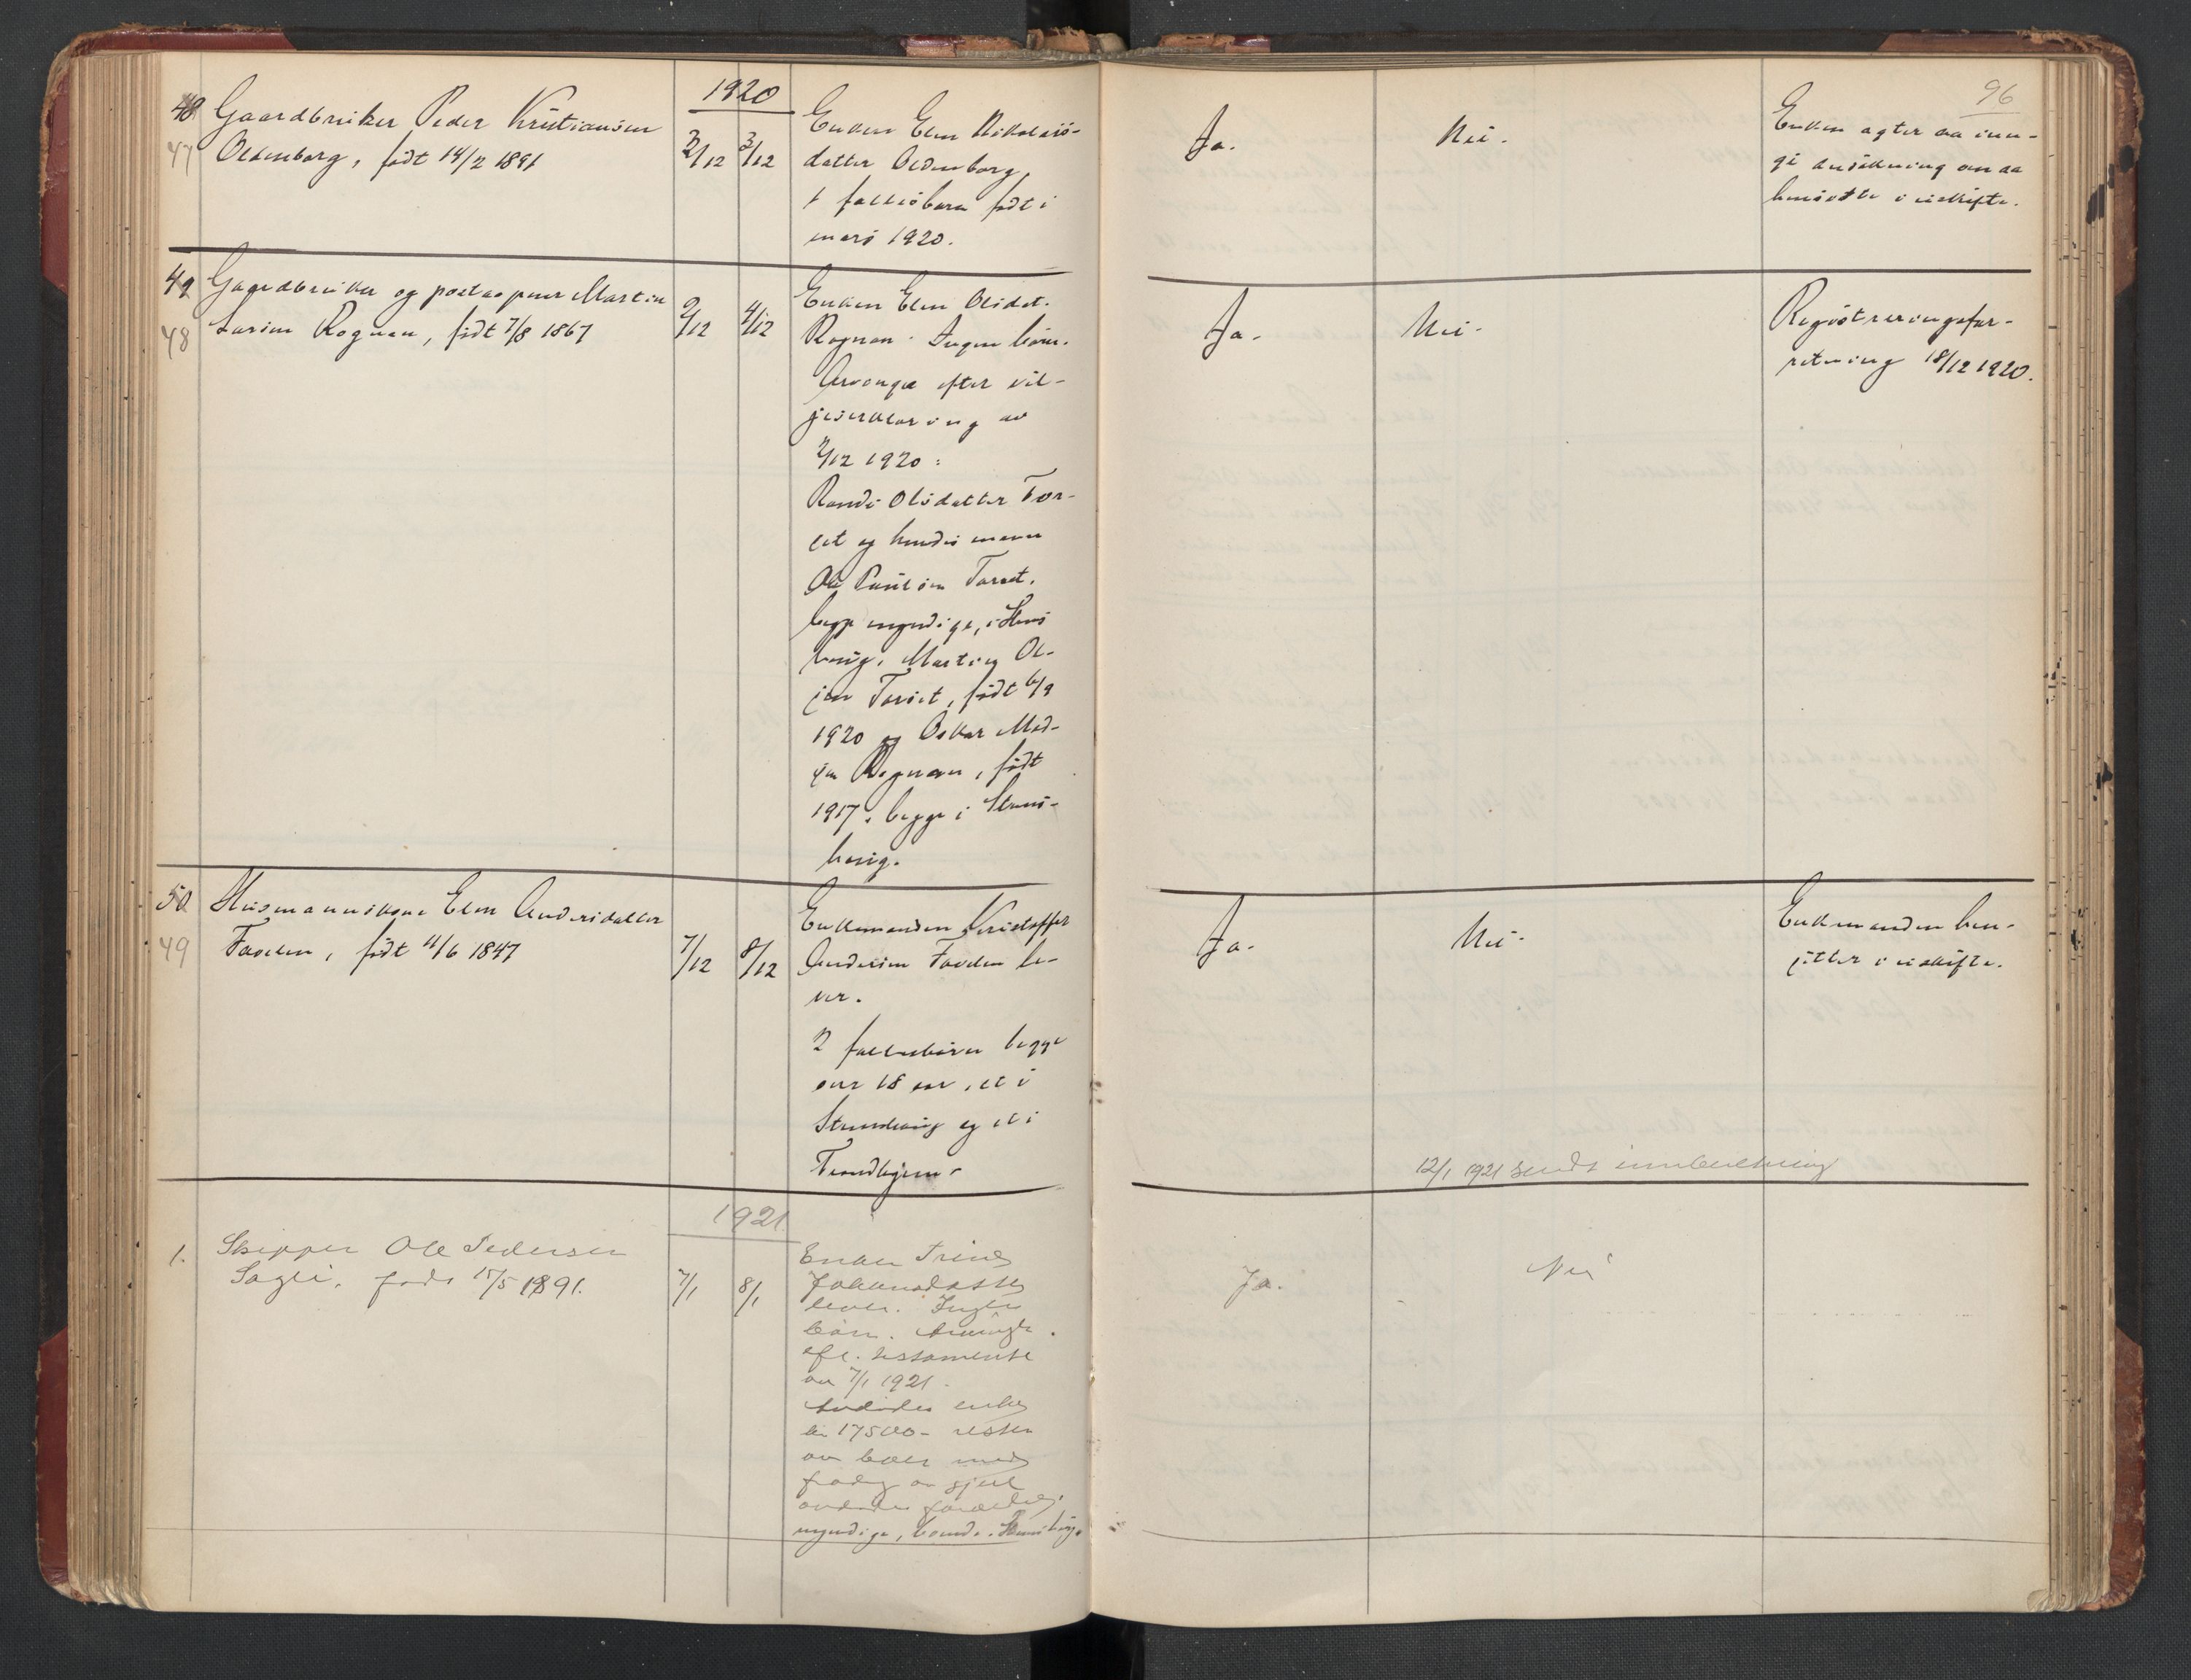 96
1920
48 Gaardbruker Peder Kristiansen
47 Oldenborg, født 14/2 1891
2/12 3/12
Enken Elen Nikolais-
datter Oldenborg,
1 fællesbarn født i
mars 1920.
Ja.
Nei.
Enken agter aa inn-
gi ansökning om aa
hensidde i uskifte.
49 Gaardbruker og postaapner Martin
48 Larsen Rognan, født 7/8 1867
2/12 4/12
Enken Elen Olsdat.
Rognan. Ingen börn.
Arvinger efter vil-
jeserklæring av
2/12 1920:
Randi Olsdatter Tør-
set og hendes mann
Ole Paulsen Tørset,
begge myndige, i Stens
bøig. Martin Ol-
sen Tørset, født 6/9
1920 og Oskar Mad-
sen Rognan, født
1917, begge i Stens-
høig.
Ja.
Nei.
Registreringsfor-
retning 18/12 1920.
50 Husmannskone Elen Andersdatter
49 Favelen, født 4/6 1847
7/12 8/12
Enkemanden Kristoffer
Andersen Favelen le-
ver.
2 fællesbörn begge
over 18 aar, et i
og et i
Trondhjem.
Ja.
Nei.
Enkemanden hen-
sitter i uskifte.
12/1 1921 sendt innberetning
1921
1. Skipper Ole Pedersen
Sagli, født 15/5 1891.
7/1 8/1
Enken Trine
Johansdatter
lever. Ingen
börn. Arvinger
eft. testamente
av 7/1 1921.
enke
kr 17500- resten
av boet med
fradrag av gjæld
myndige,
Ja.
Nei